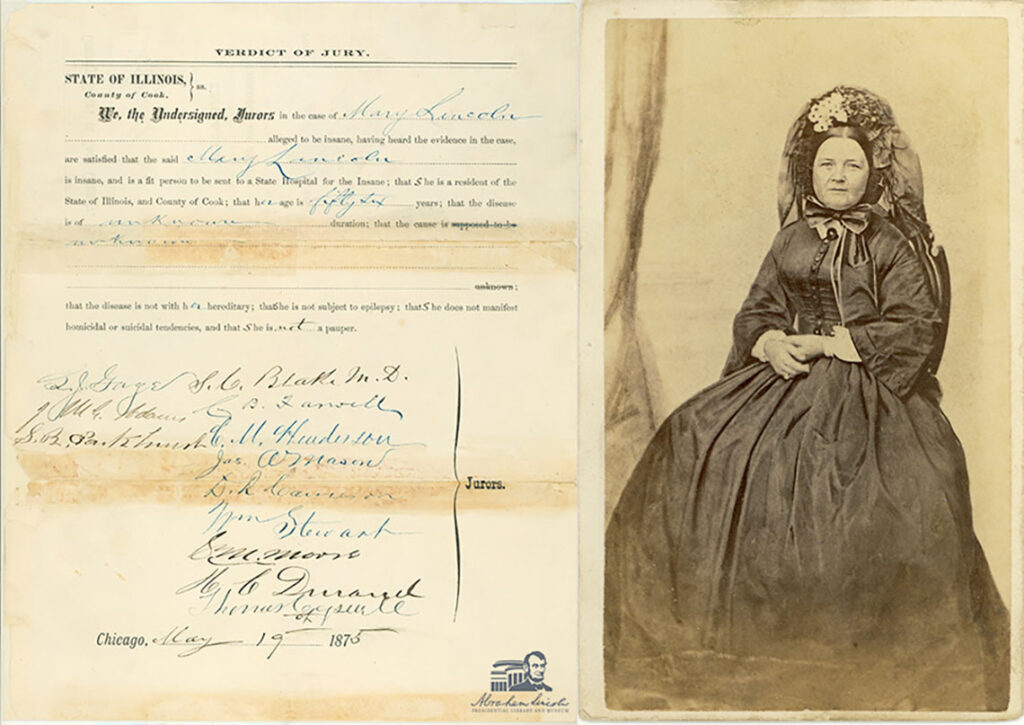 VERDICT OF JURY.
STATE OF ILLINOIS, } ss.
County of Cook.
We, the Undersigned, Jurors in the case of Mary Lincoln
alleged to be insane, having heard the evidence in the case,
are satisfied that the said Mary Lincoln
is insane, and is a fit person to be sent to a State Hospital for the Insane; that She is a resident of the
State of Illinois, and County of Cook; that her age is fifty six years; that the disease
is of unknown duration; that the cause is supposed to be
unknown
unknown;
that the disease is not with her hereditary; that She is not subject to epilepsy; that She does not manifest
homicidal or suicidal tendencies, and that She is not a pauper.
L. J. Gage S. C. Blake M. D.
C. B. Farwell
S. B. Parkhurst C. M. Henderson
Jas. A. Mason
Wm Stewart
S. M. Moore
Jurors.
H. C. Durand
Thomas Cogswell
Chicago, May 19 1875
Abraham Lincoln
PRESIDENTIAL LIBRARY AND MUSEUM